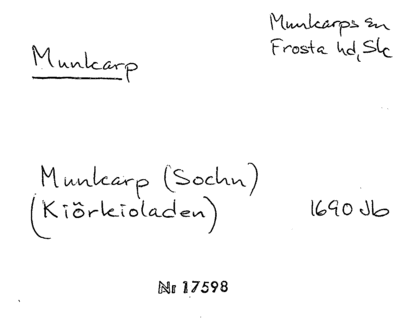 Munkarps sn
Frosta hd, Sk
Munkarp
Munkarp (Sochn)
(Kiörkioladen) 1690 Jb
Nr 17598